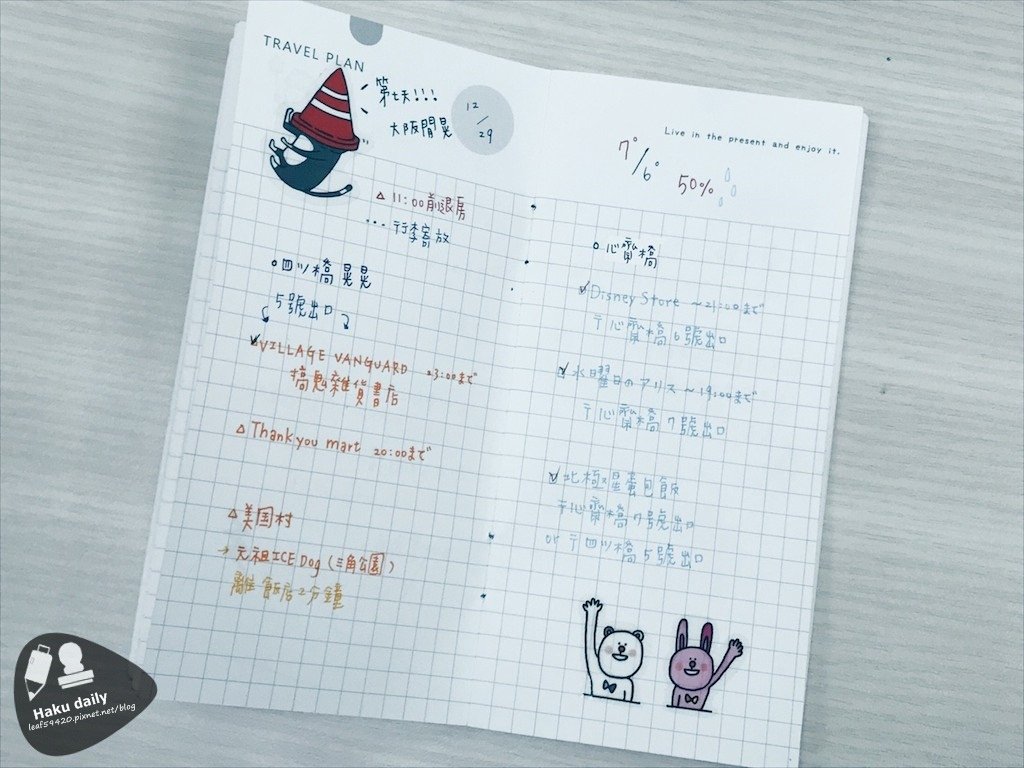 TRAVEL PLAN
第七天!!!
大阪閒晃
12/29
△ 11:00前退房
...行李寄放
四ツ橋 晃晃
5號出口
VILLAGE VANGUARD 23:00まで
搞鬼雜貨書店
△ Thank you mart 20:00まで
△ 美国村
→ 元祖ICE Dog (三角公園)
離飯店2分鐘
Live in the present and enjoy it.
7°/6° 50%
心齋橋
Disney Store ~21:00まで
于心齋橋6號出口
水曜日のアリス ~19:00まで
于心齋橋7號出口
北極星蛋包飯
于心齋橋7號出口
or 于四ツ橋5號出口
Haku daily
leaf59420.pixnet.net/blog